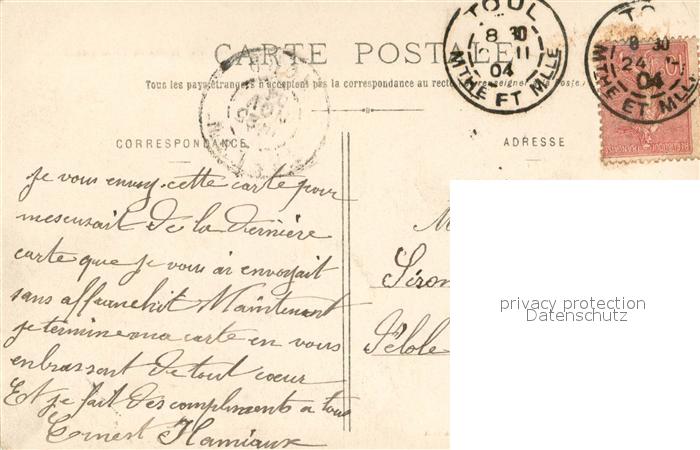 TOUL
8 30
11
04
MTHE ET MLLE
8 30
24
04
MTHE ET MLLE
CARTE POSTALE
Tous les pays étrangers n'acceptent pas la correspondance au recto (se renseigner à la Poste)
CORRESPONDANCE
ADRESSE
je vous envoy cette carte pour
mescusait de la dernière
carte que je vous ai envoyait
sans affranchit Maintenant
je termine ma carte en vous
enbrassant de tout coeur
Et je fait des compliments a tous
Ernest Hamiaux
M
privacy protection
Datenschutz